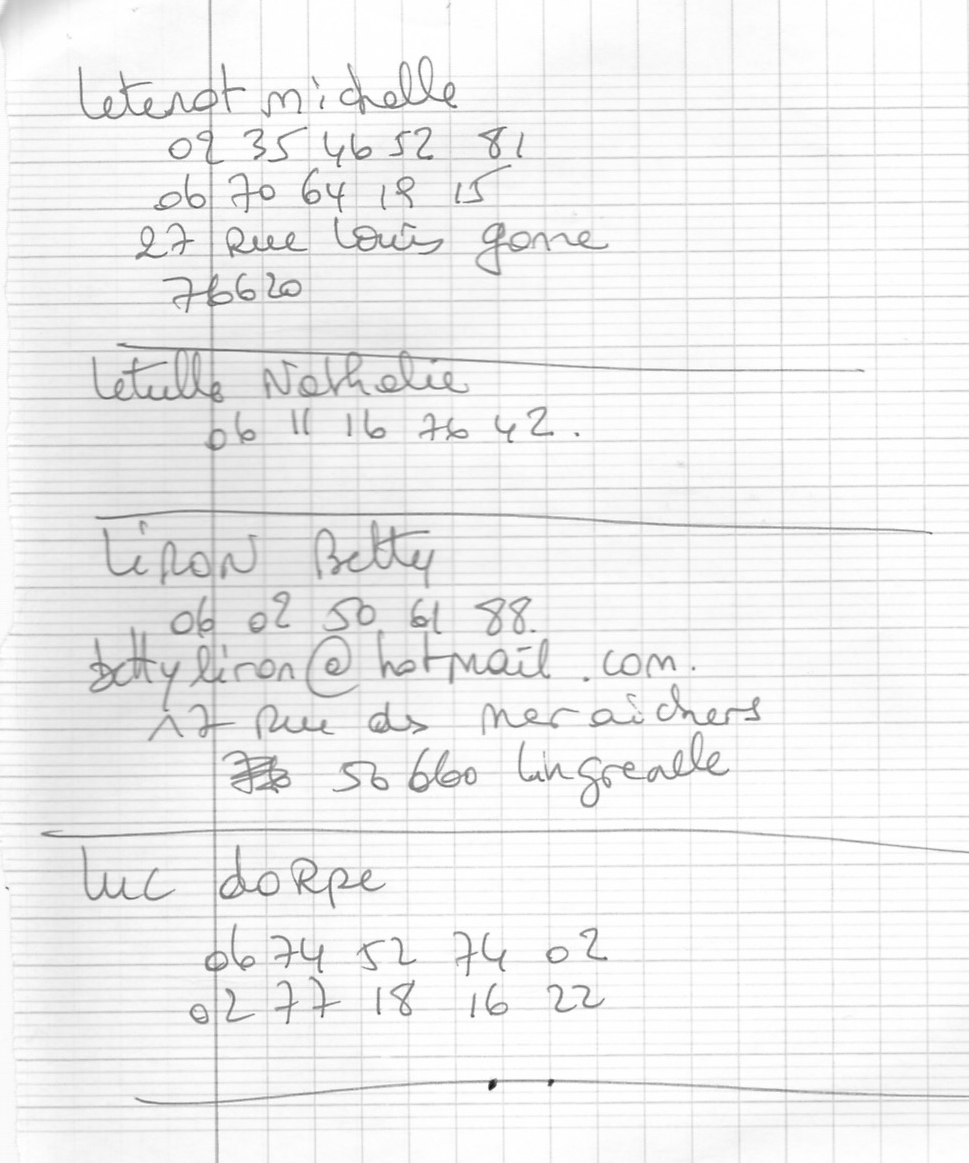 Letenot michelle
02 35 46 52 81
06 70 64 19 15
27 Rue Louis gone
76620
Letulle Nathalie
06 11 16 76 42.
Liron Betty
06 02 50 61 88.
bettyliron@hotmail.com.
17 Rue des meraichers
50660 lingrealle
Luc doRpe
06 74 52 74 02
02 77 18 16 22